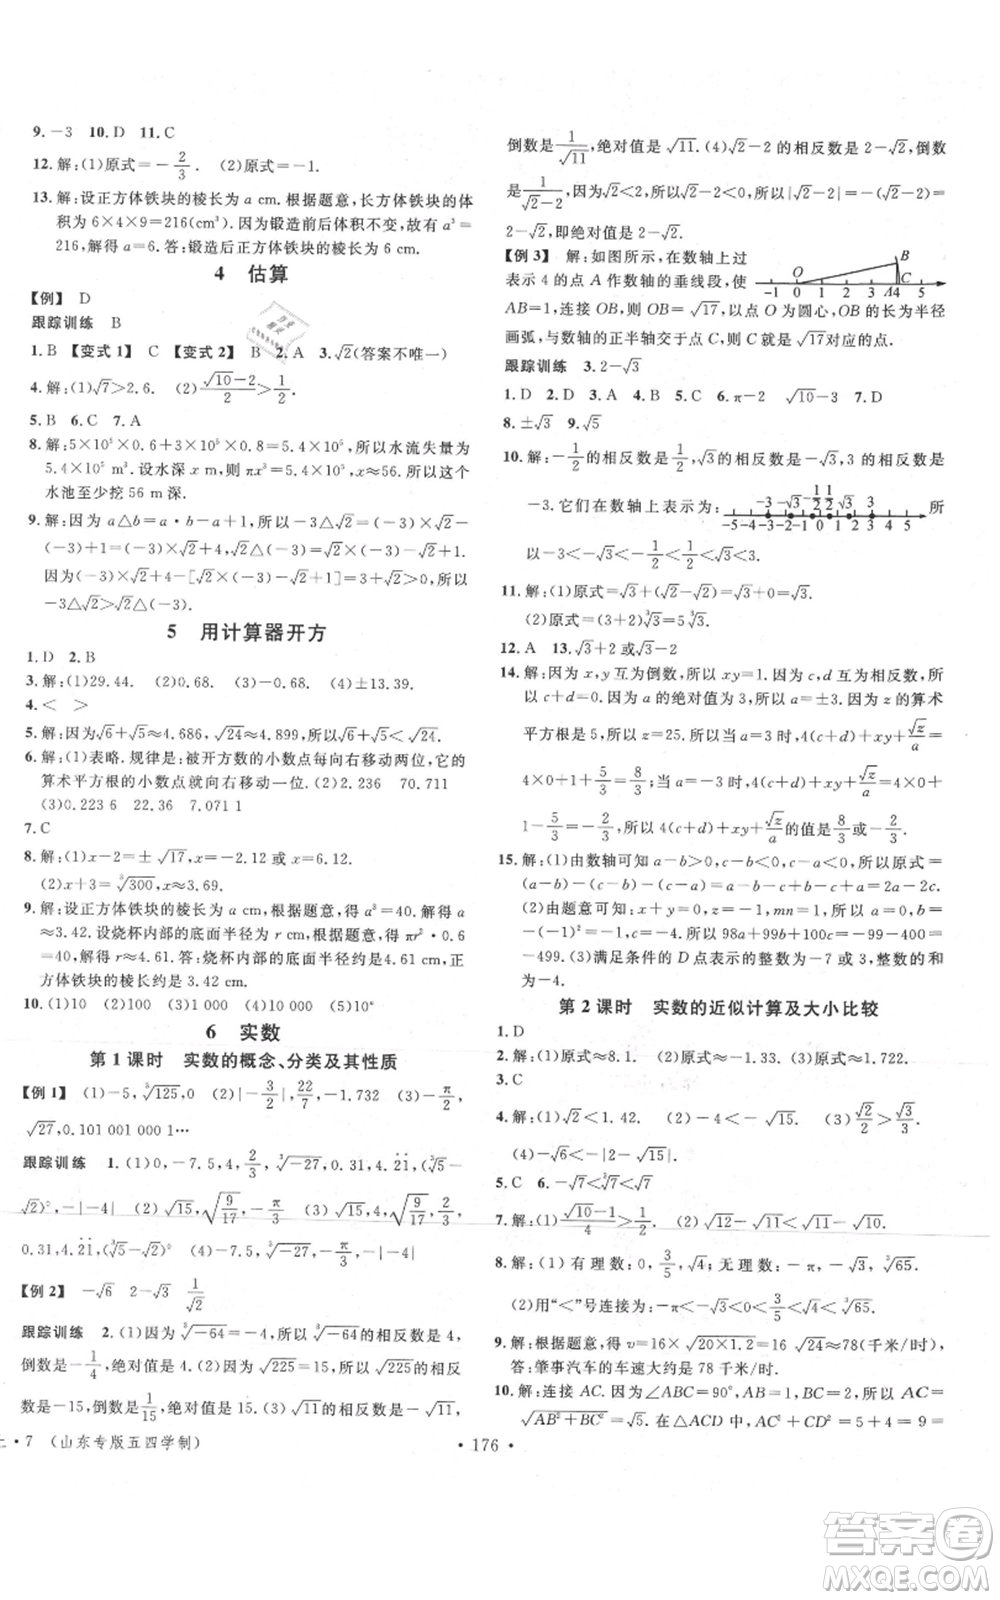 9. －3　10. D　11. C
12. 解:(1)原式＝－2/3.　(2)原式＝－1.
13. 解:设正方体铁块的棱长为 a cm. 根据题意,长方体铁块的体
积为 6×4×9＝216(cm³). 因为锻造前后体积不变,故有 a³＝
216,解得 a＝6. 答:锻造后正方体铁块的棱长为 6 cm.
4　估算
【例】　D
跟踪训练　B
1. B　【变式 1】　C　【变式 2】　B　2. A　3. √2(答案不唯一)
4. 解:(1)√7＞2.6.　(2)(√10－2)/2＞1/2.
5. B　6. C　7. A
8. 解:5×10⁵×0.6＋3×10⁵×0.8＝5.4×10⁵,所以水流失量为
5.4×10⁵ m³. 设水深 x m,则 πx³＝5.4×10⁵,x≈56. 所以这个
水池至少挖 56 m 深.
9. 解:因为 a△b＝a·b－a＋1,所以－3△√2＝(－3)×√2－
(－3)＋1＝4－3√2,√2△(－3)＝√2×(－3)－√2＋1＝1－4√2.
因为(－3)×√2－(－3)＋1－[√2×(－3)－√2＋1]＞0,所以
－3△√2＞√2△(－3).
5　用计算器开方
1. D　2. B
3. 解:(1)29.44.　(2)0.68.　(3)0.68.　(4)±13.39.
4. ＜　＞
5. 解:因为√6＋√5≈4.686,√24≈4.899,所以√6＋√5＜√24.
6. 解:(1)表略. 规律是:被开方数的小数点向右移动两位,它的
算术平方根的小数点就向右移动一位.　(2)2.236　70.711
(3)0.223 6　22.36　7.071 1
7. C
8. 解:(1)x－2＝±√17,x≈6.12 或 x≈－2.12.
(2)x＋3＝³√300,x≈3.69.
9. 解:设正方体铁块的棱长为 a cm,根据题意,得 a³＝40. 解得 a
≈3.42. 设烧杯内部的底面半径为 r cm,根据题意,得 πr²·0.6
＝40,解得 r≈4.61. 答:烧杯内部的底面半径约为 4.61 cm,正
方体铁块的棱长约为 3.42 cm.
10. (1)10　(2)100　(3)1 000　(4)10 000　(5)10ⁿ
6　实数
第 1 课时　实数的概念、分类及其性质
【例 1】　(1)－5,³√125,0　(2)|－3/2|,22/7,－1.732　(3)－π/2,
√27,0.101 001 000 1…
跟踪训练　1. (1)0,－7.5,4,³√－27,0.31,4.2̇1̇,(³√5－
√2)⁰,－|－4|　(2)√15,√(9/17),－π/3　(3)4,√15,√(9/17),
0.31,4.2̇1̇,(³√5－√2)⁰　(4)－7.5,³√－27,－π/3,－|－4|
【例 2】　－√6　2－√3　1/√2
跟踪训练　2. (1)因为³√－64＝－4,所以³√－64的相反数是 4,
倒数是－1/4,绝对值是 4.　(2)因为√225＝15,所以√225的相反
数是－15,倒数是1/15,绝对值是 15.　(3)√11的相反数是－√11,
上·7　(山东专版五四学制)
倒数是1/√11,绝对值是√11. (4)√2－2 的相反数是 2－√2,倒数
是1/(√2－2),因为√2＜2,所以√2－2＜0,所以|√2－2|＝－(√2－2)＝
2－√2,即√2－2 的绝对值是 2－√2.
【例 3】　解:如图所示,在数轴上过
表示 4 的点 A 作数轴的垂线段,使
O　B　A　C　－1　0　1　2　3　4　5
AB＝1,连接 OB,则 OB＝√17,以点 O 为圆心,OB 长为半径
画弧,与数轴的正半轴交于点 C,则点 C 就是√17对应的点.
跟踪训练　3. 2－√3
1. D　2. D　3. A　4. B　5. C　6. π－2　√10－3　7. D
8. ±√3　9. √5
10. 解:－1/2的相反数是1/2,√3的相反数是－√3,3 的相反数是
－3. 它们在数轴上表示为:
－3　－√3　－1/2　1/2　√3　3
－5－4－3－2－1 0 1 2 3 4 5
所
以－3＜－√3＜－1/2＜1/2＜√3＜3.
11. 解:(1)原式＝√3＋(√2－√2)＝√3＋0＝√3.
(2)原式＝(3＋2)³√3＝5³√3.
12. A　13. √3＋2 或√3－2
14. 解:因为 x,y 互为倒数,所以 xy＝1. 因为 c,d 互为相反数,所
以 c＋d＝0. 因为 a 的绝对值为 3,所以 a＝±3. 因为 z 的算术
平方根是 5,所以 z＝25. 当 a＝3 时,4(c＋d)＋xy＋√z/a＝
4×0＋1＋5/3＝8/3;当 a＝－3 时,4(c＋d)＋xy＋√z/a＝4×0＋
1－5/3＝－2/3,所以 4(c＋d)＋xy＋√z/a的值是8/3或－2/3.
15. 解:(1)由数轴可知 a－b＞0,c－a＜0,所以原式＝
(a－b)－(2c－2a)－(a－b)＝a－b－2c＋2a－a＋b＝2a－2c.
(2)由题意可知:x＋y＝0,z＝－1,mn＝1,所以原式＝0－1
－(－1)²＝－2. 所以 98a＋99b＋100c＝0－100－400＝
－500. (3)满足条件的 D 点表示的整数为－7,3,整数的和
为－4.
第 2 课时　实数的近似计算及大小比较
1. D
2. 解:(1)原式≈8.1.　(2)原式≈－1.33.　(3)原式≈1.722.
3. C
4. 解:(1)√2＜1.42.　(2)－4＜－√15.　(3)√2/2＞√3/3.
(4)－√6＜－|－³√15|.
5. C　6. －√7＜³√7＜√7
7. 解:(1)(√10－1)/4＞1/2.　(2)√12－√11＜√11－√10.
8. 解:(1)有理数:3/5,√4;无理数:－π,－√3,³√65.
(2)用“＜”号连接为:－π＜－√3＜3/5＜√4＜³√65.
9. 解:根据题意,得 v＝16×√20×1.2＝16√24≈78(千米/时).
答:肇事汽车的车速大约是 78 千米/时.
10. 解:连接 AC. 因为∠ABC＝90°,所以在△ABC 中,AC＝
√AB²＋BC²＝√5. 在△ACD 中,因为 AC²＋CD²＝(√5)²＋
·176·
答案圈